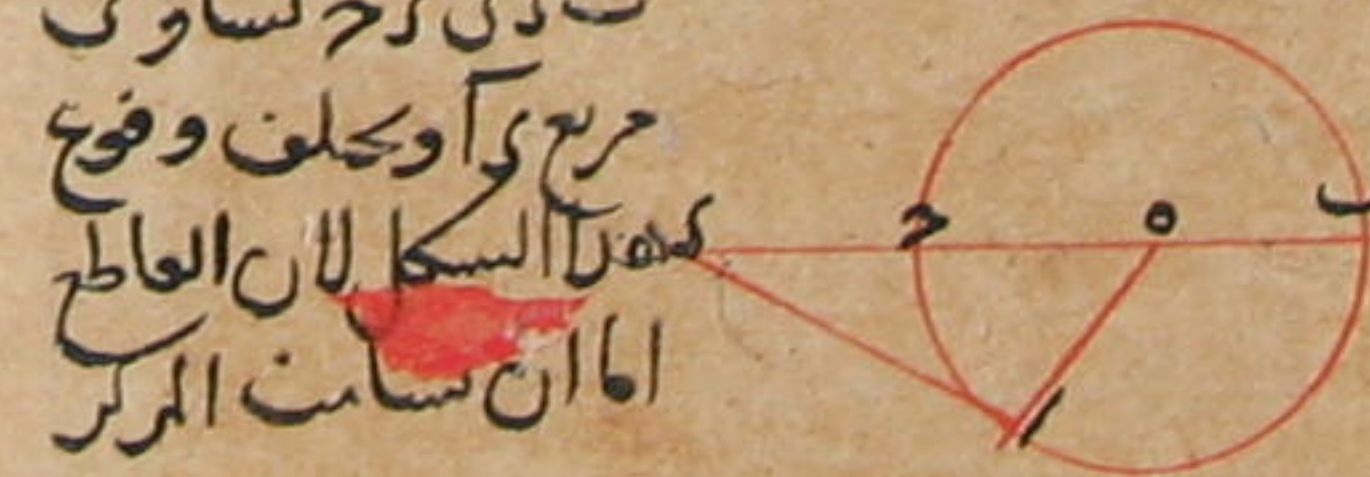 ب د في د ح يساوي
مربع د ا ويختلف وقوع
هذا الشكل لان القاطع
اما ان يسامت المركز
د
ح
ه
ب
ا